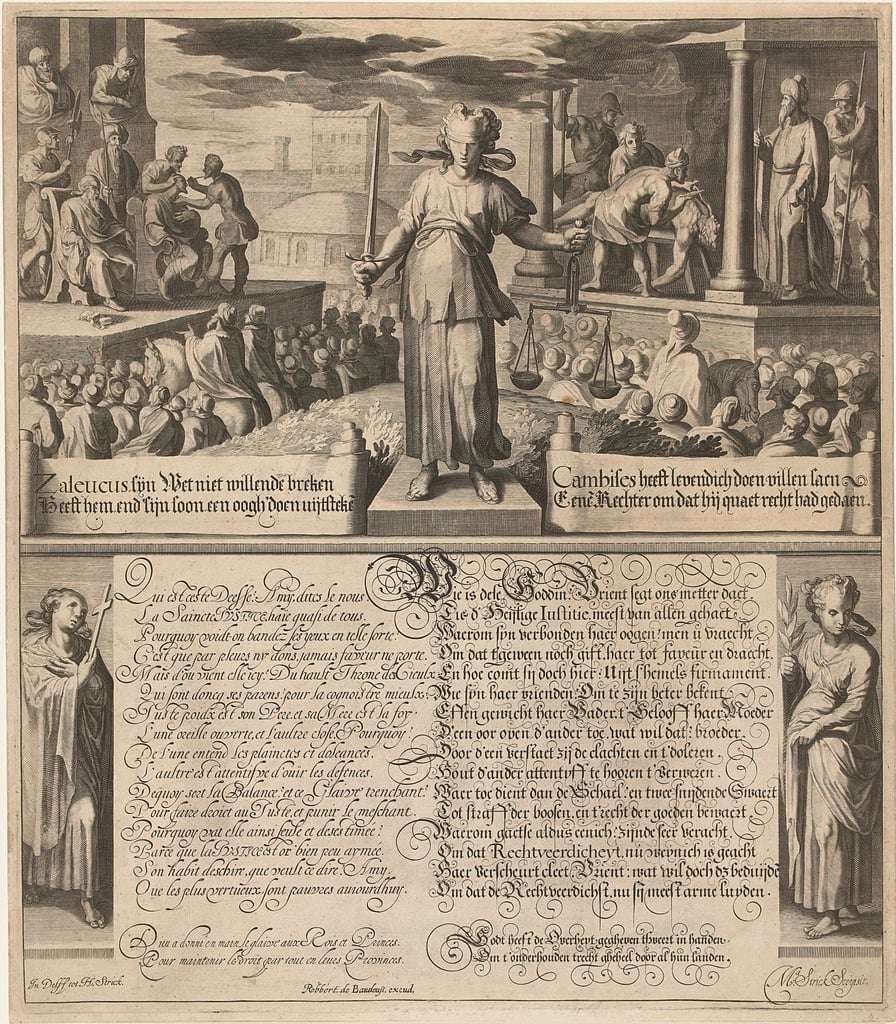 Zaleucus sijn Wet niet willende breken
Heeft hem end sijn soon een oogh doen uijtstekē
Cambises heeft levendich doen villen saen
Eenē Rechter om dat hij quaet recht had gedaen.
Qui est ceste Deesse? Amy, dites le nous.
La Saincte IVSTICE, haie quasi de tous.
Pourquoy voidt-on bandez ses yeux en telle sorte?
C'est que par pleurs ny dons, jamais faveur ne porte.
Mais d'ou vient elle icy? Du hault Throne des Cieulx
Qui sont doncq ses parens? pour la cognoistre mieulx?
Juste poidx est son Pere, et sa Mere est la foy.
L'une oreille ouverte, et l'aultre close, Pourquoy?
De l'une entend les plainctes et doleances.
L'aultre est attentifve d'ouir les defences.
Dequoy sert la Balance? et ce Glaive trenchant?
Pour faire droict au Juste, et punir le meschant.
Pourquoy vat elle ainsi seule et desestimée?
Parce que la IVSTICE est or bien peu aymée.
Son habit deschire, que veult ce dire, Amy,
Que les plus vertueux sont pauvres aujourdhuy.
Dieu a donné en main le glaive aux Rois et Princes.
Pour maintenir le droit par tout en leurs Provinces.
Wie is dese Goddin? Vrient segt ons metter daet
Tis d'Heijlige Iustitie, meest van allen gehaet
Waerom sijn verbonden haer oogen? men u vraecht
Om dat tgeween noch gift haer tot faveur en draecht.
En hoe comt sij doch hier? Uijt s'hemels firmament.
Wie sijn haer vrienden? Om te zijn beter bekent
Effen gewicht haer Vader? Gelooff haer Moeder
D'een oor open d'ander toe, wat wil dat? broeder.
Door d'een verstaet zij de clachten en t'doleren.
Hout d'ander attentyff te hooren t'verweren.
Waer toe dient dan de Schael? en twee snijdende Swaert
Tot straff der boosen, en t'recht der goeden bewaert
Waerom gaetse aldus eenich? zijnde seer veracht.
Om dat Rechtveerdicheyt, nu weynich is geacht
Haer verscheurt cleet, Vrient? wat wil doch dz beduijdē
Om dat de Rechtveerdichst, nu sij meest arme luyden.
Godt heeft de Overheyt gegheven tsweert in handen.
Om t'onderhouden trecht geheel door al hun landen.
In Delff tot H. Strick.
Robbert de Baudous. excud.
M. Strick Scripsit.